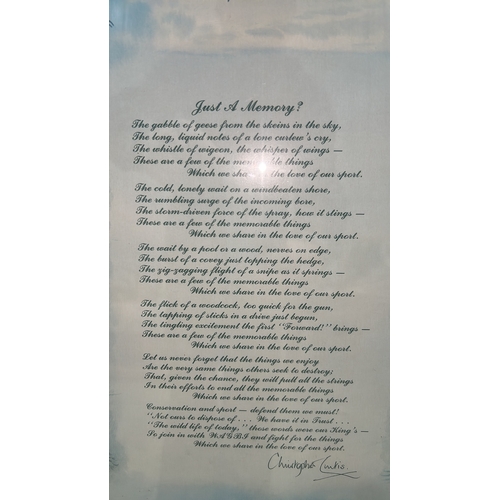 Just A Memory?
The gabble of geese from the skeins in the sky,
The long, liquid notes of a lone curlew's cry,
The whistle of wigeon, the whisper of wings —
These are a few of the memorable things
Which we share in the love of our sport.
The cold, lonely wait on a windbeaten shore,
The rumbling surge of the incoming bore,
The storm-driven force of the spray, how it stings —
These are a few of the memorable things
Which we share in the love of our sport.
The wait by a pool or a wood, nerves on edge,
The burst of a covey just topping the hedge,
The zig-zagging flight of a snipe as it springs —
These are a few of the memorable things
Which we share in the love of our sport.
The flick of a woodcock, too quick for the gun,
The tapping of sticks in a drive just begun,
The tingling excitement the first "Forward!" brings —
These are a few of the memorable things
Which we share in the love of our sport.
Let us never forget that the things we enjoy
Are the very same things others seek to destroy;
That, given the chance, they will pull all the strings
In their efforts to end all the memorable things
Which we share in the love of our sport.
Conservation and sport — defend them we must!
"Not ours to dispose of . . . We have it in Trust . . .
"The wild life of today," those words were our King's —
So join in with WAGBI and fight for the things
Which we share in the love of our sport.
Christopher Curtis